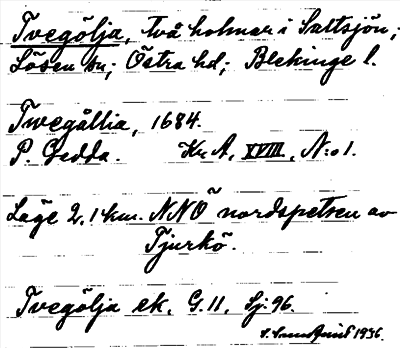 Tvegölja, två holmar i Saltsjön;
Lösen sn; Östra hd; Blekinge l.
Twegållia, 1684.
P. Gedda. Kr. A, XVIII, N:o 1.
Läge 2,1 km. NNÖ nordspetsen av
Tjurkö.
Tvegölja ek. G. 11. Sj. 96.
1936.